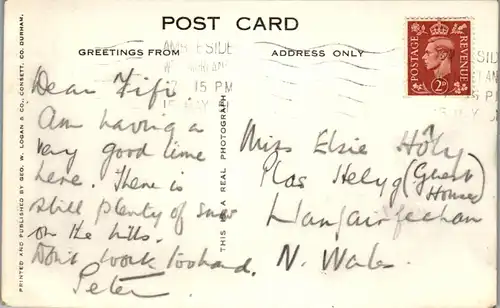 POST CARD
GREETINGS FROM
ADDRESS ONLY
AMBLESIDE
15 PM
POSTAGE
REVENUE
2D
Dear Fifi.
Am having a
very good time
here. There is
still plenty of snow
on the hills.
Don't work too hard.
Peter
THIS IS A REAL PHOTOGRAPH
Miss Elsie Höly
Plas Helyg (Guest
House)
Llanfairfechan
N. Wales.
PRINTED AND PUBLISHED BY GEO. W. LOGAN & CO., CONSETT, CO. DURHAM.